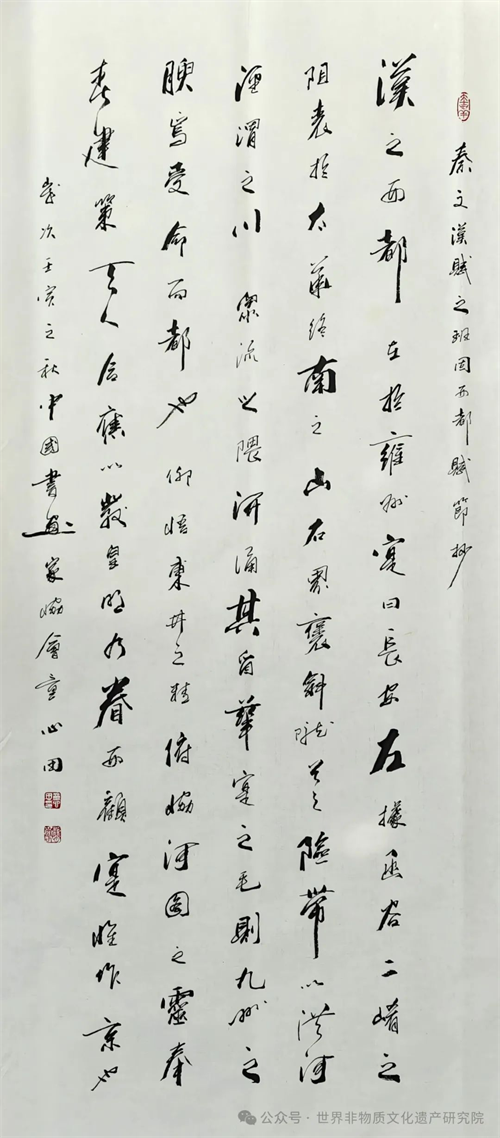 秦文漢賦之班固西都賦節抄
漢之西都在於雍州寔曰長安左據函谷二崤之
阻表於太華終南之山右界褒斜隴首之險帶以洪河
涇渭之川眾流之隈汧涌其西華寔之毛則九州之
腴焉受命而都也仰悟東井之精俯協河圖之靈奉
春建策天人合應以發皇明乃眷西顧寔惟作京也
歲次壬寅之秋中國書畫家協會童心田
公众号 · 世界非物质文化遗产研究院